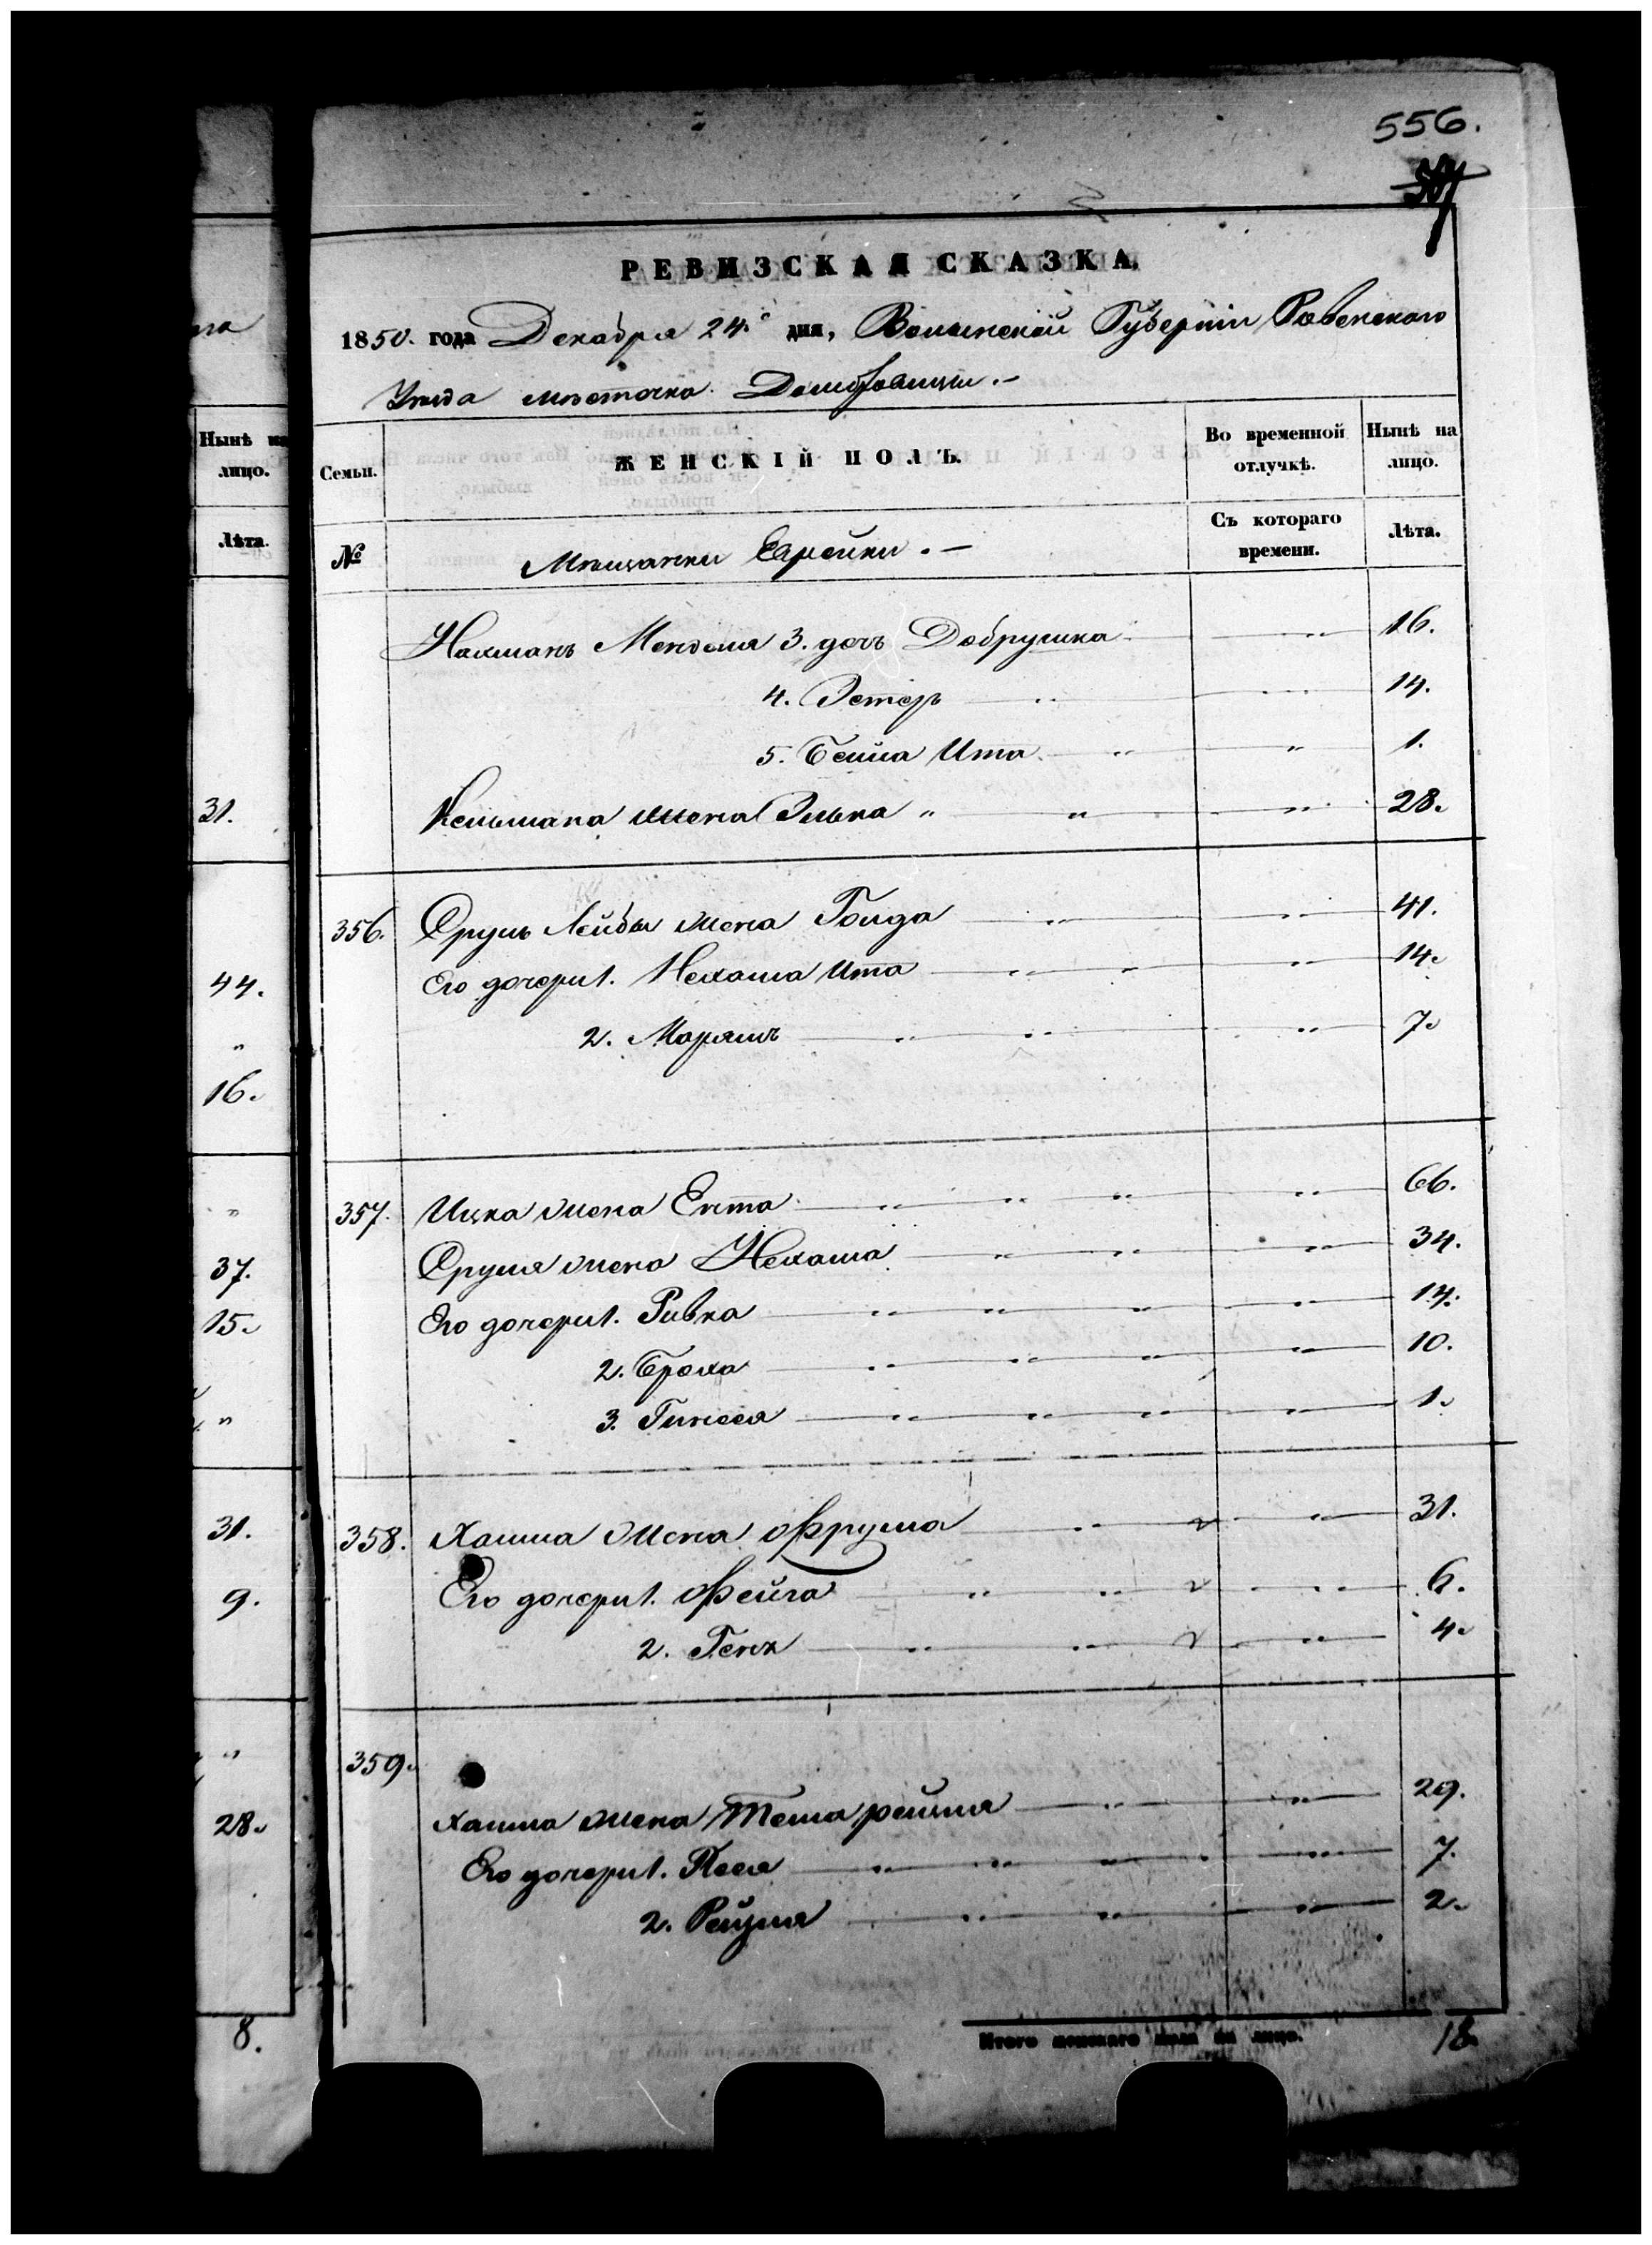 556.
РЕВИЗСКАЯ СКАЗКА.
1850. года Декабря 24.го дня, Волынской Губерніи Ровенскаго
Уѣзда мѣстечка Домбровицы.-
Семьи.
ЖЕНСКІЙ ПОЛЪ.
Во временной отлучкѣ.
Нынѣ на лицо.
№
Мѣщанки Еврейки.-
Съ котораго времени.
Лѣта.
Нахманъ Менделя 3. дочь Добрушка " 16.
4. Эстеръ " " 14.
5. Бейла Ита " " 1.
Кельмана жена Элька " " " 28.
356. Сруль Лейбы жена Голда " " 41.
Его дочери 1. Нехама Ита " " " 14.
2. Марьямъ " " " 7.
357. Ицка жена Ента " " " " 66.
Сруля жена Нехама " " " 34.
Его дочери 1. Ривка " " " " 14.
2. Броха " " " " 10.
3. Гинеся " " " " 1.
358. Хаима жена Фрума " " 31.
Его дочери 1. Фейга " " " 6.
2. Геня " " " 4.
359.
Хаима жена Тема рейзля " " 29.
Его дочери 1. Песя " " " " 7.
2. Рейзля " " " 2.
Итого женскаго пола на лицо. 18
Нынѣ на
лицо.
Лѣта.
31.
44.
"
16.
"
37.
15.
"
31.
9.
"
28.
8.